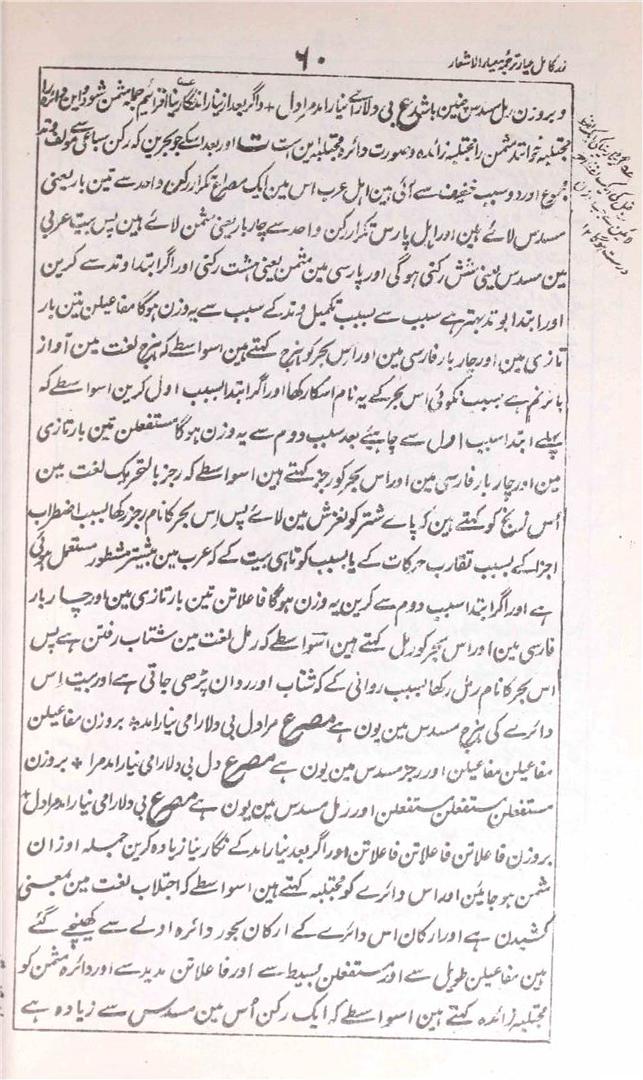 زر کامل عیار ترجمہ معیار الاشعار
۶۰
و بر وزن رمل مسدس چنین باشد ع بی دلارای نیارامد مرا دل + و اگر بعد از نیارامد نگارینا افزائیم جملہ مثمن شود و این دائرہ را
مجتلبہ خوانند و مثمن را مجتلبہ زائدہ و صورت دائرہ مجتلبہ این است ت اور بعد اسکے جو بحرین کہ رکن سباعی سے مولف وتد
مجموع اور دو سبب خفیف سے آئی ہین اہل عرب اس مین ایک مصراع تکرار رکن واحد سے تین بار یعنی
مسدس لائے ہین اور اہل پارس تکرار رکن واحد سے چار بار یعنی مثمن لائے ہین پس بیت عربی
مین مسدس یعنی شش رکنی ہوگی اور پارسی مین مثمن یعنی ہشت رکنی اور اگر ابتدا وتد سے کرین
اور ابتدا بوتد بہتر ہے سبب سے بسبب تکمیل وتد کے سبب سے یہ وزن ہوگا مفاعیلن تین بار
تازی مین اور چار بار فارسی مین اور اس بحر کو ہزج کہتے ہین اسواسطے کہ ہزج لغت مین آواز
با ترنم ہے بسبب نکوئی اس بحر کے یہ نام اسکا رکھا اور اگر ابتدا بسبب اول کرین اسواسطے کہ
پہلے ابتدا سبب اول سے چاہیئے بعد سبب دوم سے یہ وزن ہوگا مستفعلن تین بار تازی
مین اور چار بار فارسی مین اور اس بحر کو رجز کہتے ہین اسواسطے کہ رجز بالتحریک لغت مین
اُس رنج کو کہتے ہین کہ پاے شتر کو لغزش مین لائے پس اِس بحر کا نام رجز رکھا بسبب اضطراب
اجزا کے بسبب تقارب حرکات کے یا بسبب کوتاہی بیت کے کہ عرب مین بیشتر مشطور مستعمل ہوئی
ہے اور اگر ابتدا سبب دوم سے کرین یہ وزن ہوگا فاعلاتن تین بار تازی مین اور چار بار
فارسی مین اور اس بحر کو رمل کہتے ہین اسواسطے کہ رمل لغت مین شتاب رفتن ہے پس
اس بحر کا نام رمل رکھا بسبب روانی کے کہ شتاب اور روان پڑھی جاتی ہے اور بیت اِس
دائرے کی ہزج مسدس مین یون ہے مصرع مرا دل بی دلارامی نیارامد + بر وزن مفاعیلن
مفاعیلن مفاعیلن اور رجز مسدس مین یون ہے مصرع دل بی دلارامی نیارامد مرا + بروزن
مستفعلن مستفعلن مستفعلن اور رمل مسدس مین یون ہے مصرع بی دلارامی نیارامد مرا دل +
بروزن فاعلاتن فاعلاتن فاعلاتن اور اگر بعد نیارامد کے نگارینا زیادہ کرین جملہ اوزان
مثمن ہوجاین اور اس دائرے کو مجتلبہ کہتے ہین اسواسطے کہ اجتلاب لغت مین بمعنی
کشیدن ہے اور ارکان اس دائرے کے ارکان بحور دائرہ اولے سے کھینچے گئے
ہین مفاعیلن طویل سے اور مستفعلن بسیط سے اور فاعلاتن مدید سے اور دائرہ مثمن کو
مجتلبہ زائدہ کہتے ہین اسواسطے کہ ایک رکن اُس مین مسدس سے زیادہ ہے